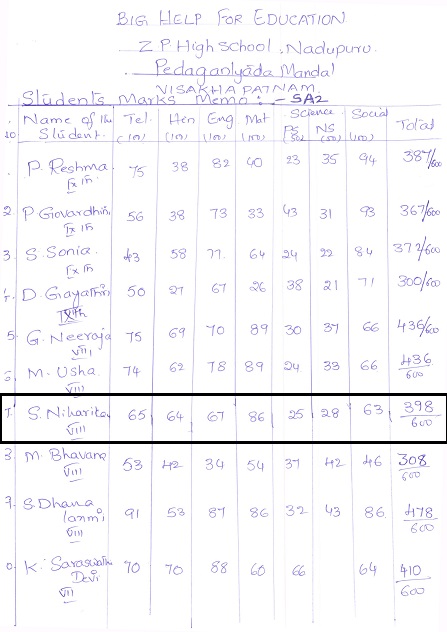 BIG HELP FOR EDUCATION
Z P High School, Nadupuru.
Pedagantyada Mandal
VISAKHAPATNAM.
Students Marks Memo :- SA2
Name of the Student. Tel. (100) Hen (100) Eng (100) Mat (100) Science PS (50) NS (50) Social (100) Total
P. Reshma IX th 75 38 82 40 23 35 94 387/600
2. P Govardhini IX th 56 38 73 33 43 31 93 367/600
3. S. Sonia IX th 43 58 77 64 24 22 84 372/600
D. Gayathiri IXth 50 27 67 26 38 21 71 300/600
5. G. Neeraja VIII 75 69 70 89 30 37 66 436/600
M. Usha VIII 74 62 78 89 24 33 66 436/600
7. S. Niharika VIII 65 64 67 86 25 28 63 398/600
M. Bhavana VIII 53 42 34 54 37 42 46 308/600
9. S. Dhana laxmi VIII 91 53 87 86 32 43 86 478/600
K. Saraswathi Devi VII 70 70 88 60 66 64 410/600